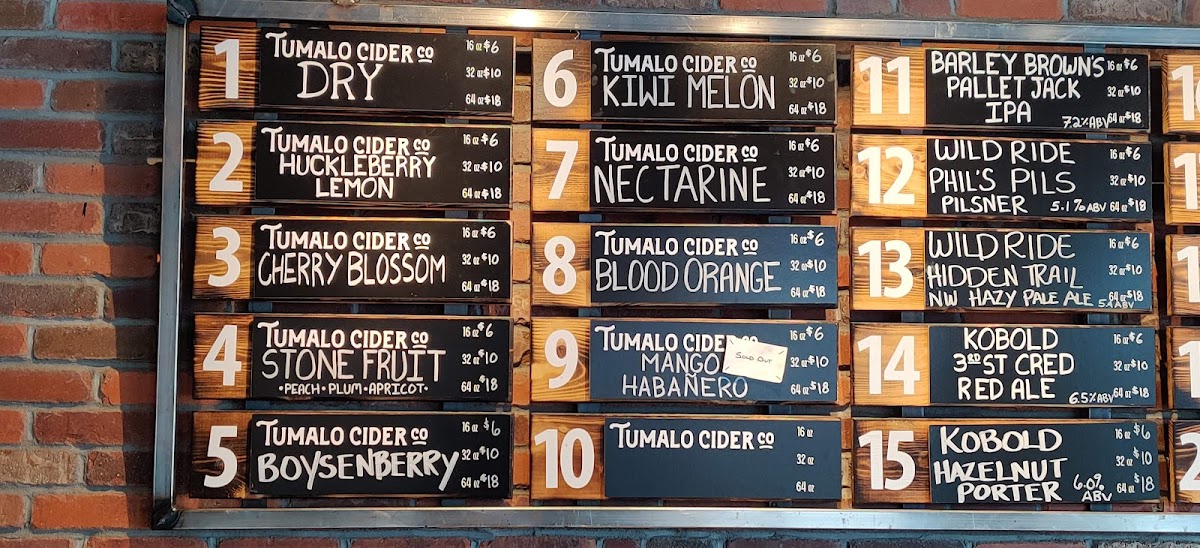 1
TUMALO CIDER CO
DRY
16 oz $6
32 oz $10
64 oz $18
2
TUMALO CIDER CO
HUCKLEBERRY
LEMON
16 oz $6
32 oz $10
64 oz $18
3
TUMALO CIDER CO
CHERRY BLOSSOM
16 oz $6
32 oz $10
64 oz $18
4
TUMALO CIDER CO
STONE FRUIT
•PEACH•PLUM•APRICOT•
16 oz $6
32 oz $10
64 oz $18
5
TUMALO CIDER CO
BOYSENBERRY
16 oz $6
32 oz $10
64 oz $18
6
TUMALO CIDER CO
KIWI MELON
16 oz $6
32 oz $10
64 oz $18
7
TUMALO CIDER CO
NECTARINE
16 oz $6
32 oz $10
64 oz $18
8
TUMALO CIDER CO
BLOOD ORANGE
16 oz $6
32 oz $10
64 oz $18
9
TUMALO CIDER
MANGO
HABAÑERO
SOLD OUT
16 oz $6
32 oz $10
64 oz $18
10
TUMALO CIDER CO
16 oz
32 oz
64 oz
11
BARLEY BROWN'S
PALLET JACK
IPA
7.2% ABV
16 oz $6
32 oz $10
64 oz $18
12
WILD RIDE
PHIL'S PILS
PILSNER
5.1% ABV
16 oz $6
32 oz $10
64 oz $18
13
WILD RIDE
HIDDEN TRAIL
NW HAZY PALE ALE
5.4% ABV
16 oz $6
32 oz $10
64 oz $18
14
KOBOLD
3RD ST CRED
RED ALE
6.5% ABV
16 oz $6
32 oz $10
64 oz $18
15
KOBOLD
HAZELNUT
PORTER
6.0% ABV
16 oz $6
32 oz $10
64 oz $18